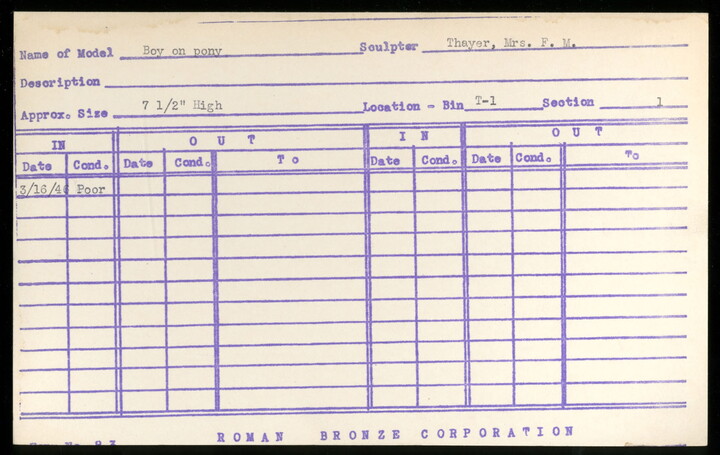 Name of Model Boy on pony Sculptor Thayer, Mrs. F. M.
Description
Approx. Size 7 1/2" High Location - Bin T-1 Section 1
IN OUT IN OUT
Date Cond. Date Cond. To Date Cond. Date Cond. To
3/16/46 Poor
ROMAN BRONZE CORPORATION